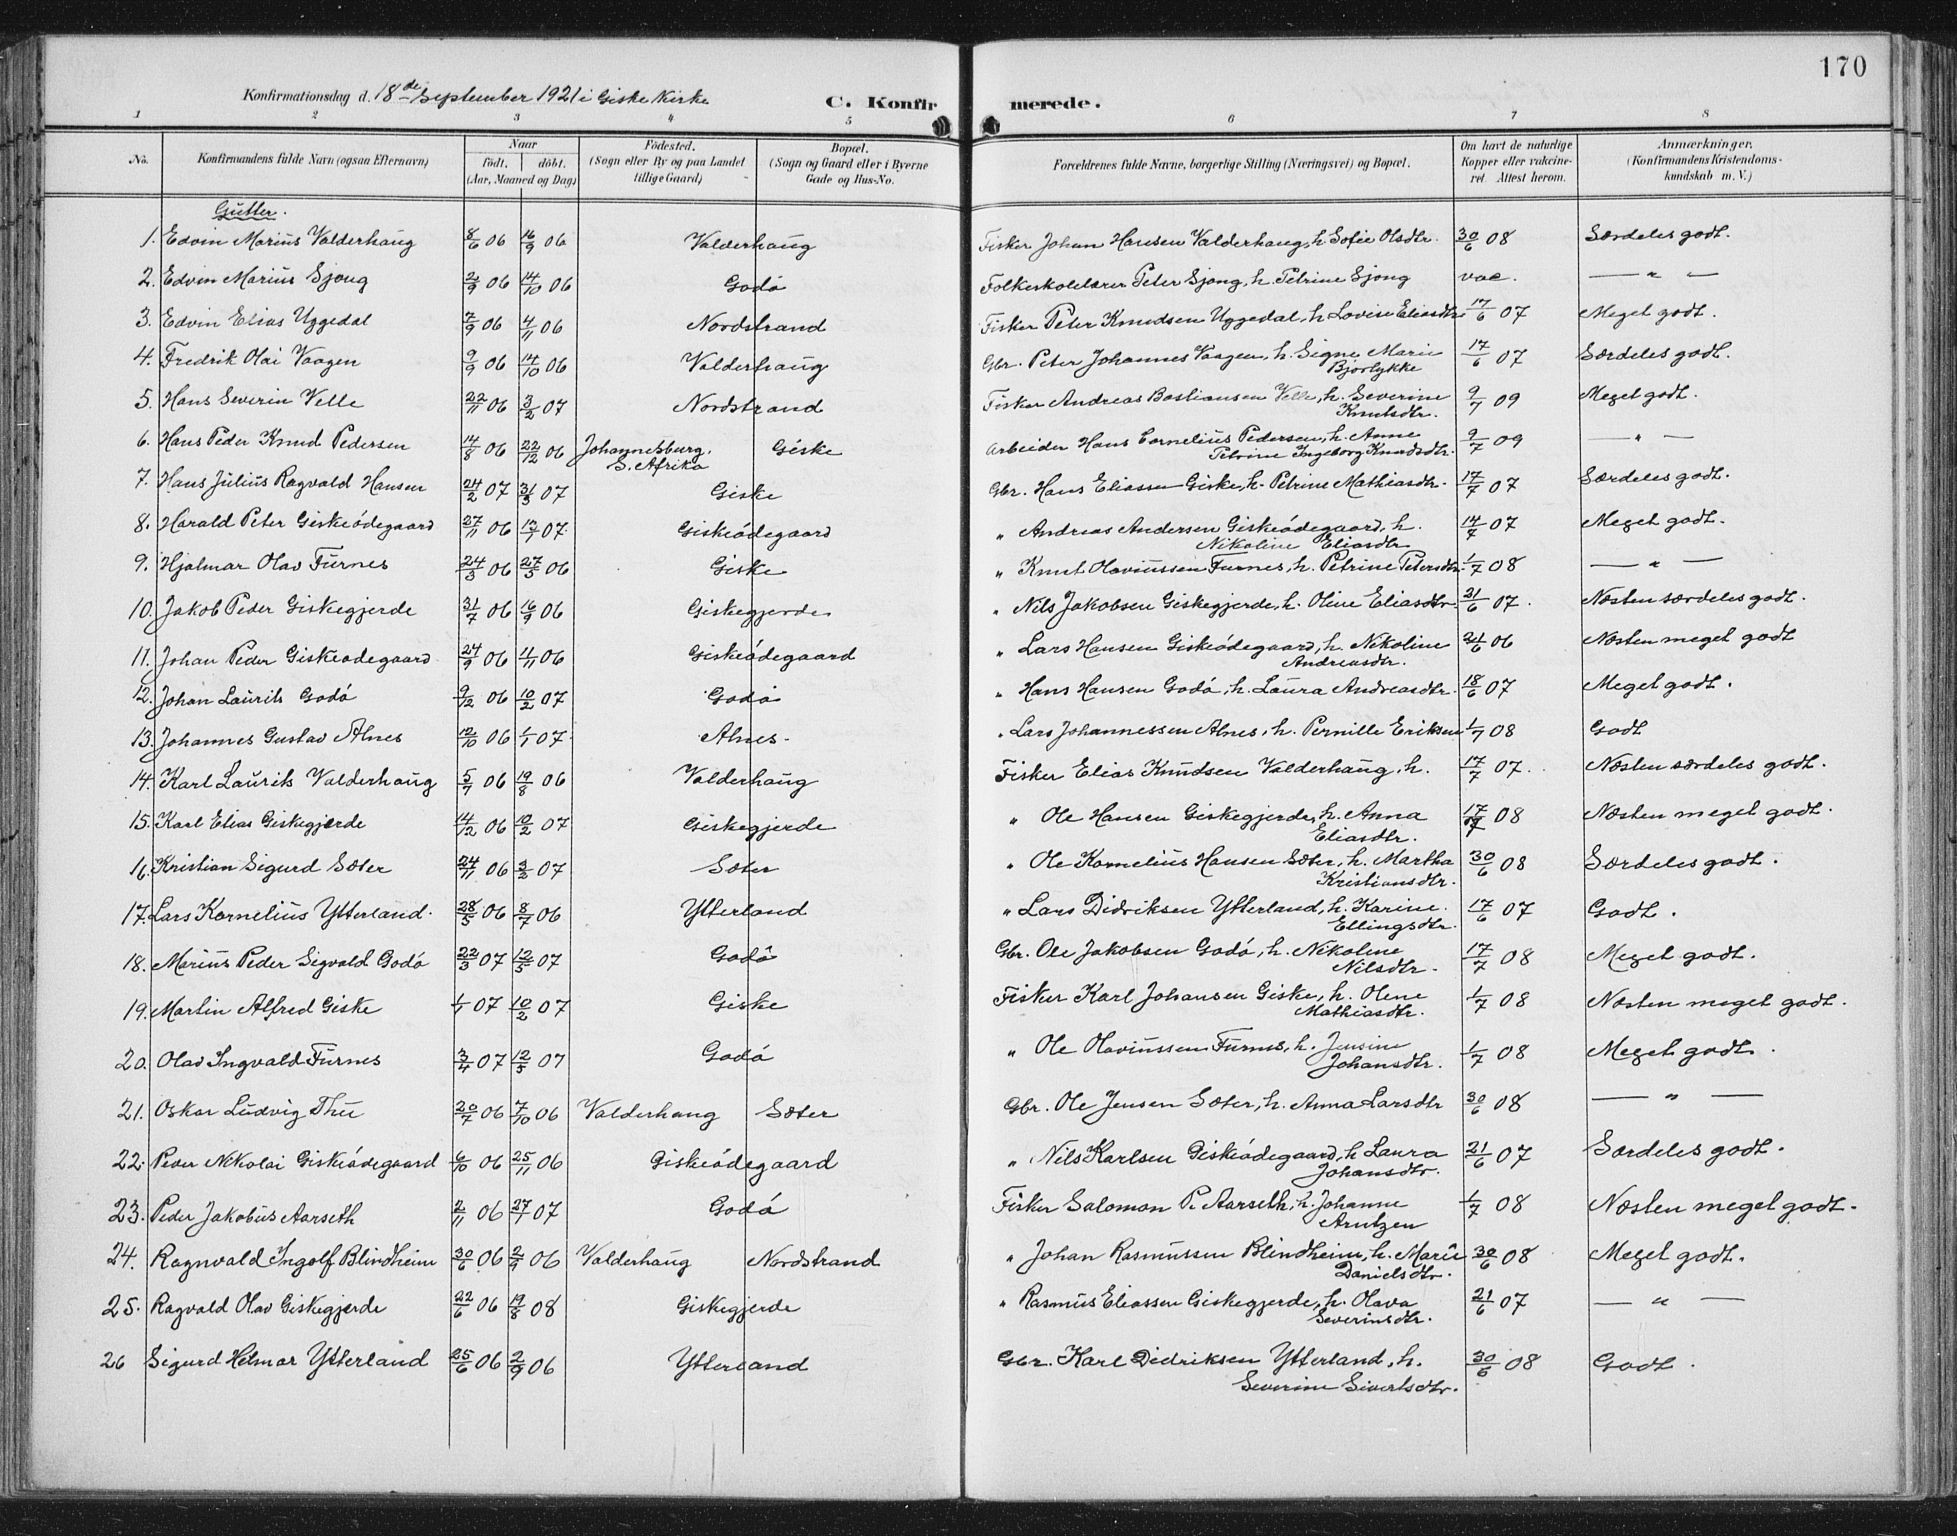 170
Konfirmationsdag d. 18de September 1921 i Giske Kirke
C. Konfirmerede.
1 2 3 4 5 6 7 8
No. Konfirmandens fulde Navn (ogsaa Efternavn) Naar født. døbt. (Aar, Maaned og Dag) Fødested. (Sogn eller By og paa Landet tillige Gaard) Bopæl. (Sogn og Gaard eller i Byerne Gade og Hus-No. Forældrenes fulde Navne, borgerlige Stilling (Næringsvei) og Bopæl. Om havt de naturlige Kopper eller vakcineret. Attest herom. Anmærkninger. (Konfirmandens Kristendomskundskab m. V.)
Gutter.
1. Edvin Marius Valderhaug 8/6 06 16/9 06 Valderhaug Fisker Johan Hansen Valderhaug, h. Sofie Olsdtr. 30/6 08 Særdeles godt.
2. Edvin Marius Sjong 2/9 06 14/10 06 Godø Folkeskolelærer Peter Sjong, h. Petrine Sjong vac. — " —
3. Edvin Elias Uggedal 7/9 06 4/11 06 Nordstrand Fisker Peter Knudsen Uggedal, h. Lovise Eliasdtr. 17/6 07 Meget godt.
4. Fredrik Olai Vaagen 9/9 06 14/10 06 Valderhaug Gbr. Peter Johannes Vaagen, h. Signe Marie Bjørlykke 17/6 07 Særdeles godt.
5. Hans Severin Velle 22/11 06 3/2 07 Nordstrand Fisker Andreas Bastiansen Velle, h. Severine Knutsdtr. 9/7 09 Meget godt.
6. Hans Peder Knud Pedersen 14/8 06 22/12 06 Johannesburg, S. Afrika Giske Arbeider Hans Cornelius Pedersen, h. Anne Petrine Ingeborg Knudsdtr. 9/7 09 — " —
7. Hans Julius Ragvald Hansen 24/2 07 31/3 07 Giske Gbr. Hans Eliassen Giske, h. Petrine Mathiasdtr. 17/7 07 Særdeles godt.
8. Harald Peter Giskeødegaard 27/11 06 07 Giskeødegaard " Andreas Andersen Giskeødegaard, h. Nikoline Eliasdtr 14/7 07 Meget godt.
9. Hjalmar Olav Furnes 24/3 06 27/5 06 Giske " Knut Olaviussen Furnes, h. Petrine Petersdtr. 1/7 08 — " —
10. Jakob Peder Giskegjerde 31/7 06 16/9 06 Giskegjerde " Nils Jakobsen Giskegjerde, h. Oline Eliasdtr. 21/6 07. Næsten særdeles godt.
11. Johan Peder Giskeødegaard 24/9 06 4/11 06 Giskeødegaard " Lars Hansen Giskeødegaard, h. Nikoline Andreasdtr. 21/6 06 Næsten meget godt
12. Johan Laurits Godø 9/12 06 10/2 07 Godø " Hans Hansen Godø, h. Laura Andreasdtr. 18/6 07 Meget godt.
13. Johannes Gustav Alnes 12/10 06 1/1 07 Alnes. " Lars Johannessen Alnes, h. Pernille Eriksen 1/7 08 Godt
14. Karl Laurits Valderhaug 5/7 06 19/8 06 Valderhaug Fisker Elias Knudsen Valderhaug, h. 17/7 07. Næsten særdeles godt.
15. Karl Elias Giskegjerde 14/12 06 10/2 07 Giskegjerde " Ole Hansen Giskegjerde, h. Anna Eliasdtr. 17/7 08 Næsten meget godt.
16. Kristian Sigurd Sæter 24/11 06 3/2 07 Sæter " Ole Kornelius Hansen Sæter, h. Martha Kristiansdtr. 30/6 08 Særdeles godt.
17. Lars Kornelius Ytterland. 28/5 06 8/7 06 Ytterland " Lars Didriksen Ytterland, h. Karine Ellingsdtr. 17/6 07 Godt.
18. Marius Peder Sigvald Godø 22/3 07 12/5 07 Godø Gbr. Ole Jakobsen Godø, h. Nikoline Nilsdtr. 17/7 08 Meget godt.
19. Martin Alfred Giske 1/1 07 10/2 07 Giske Fisker Karl Johansen Giske, h. Olene Mathiasdtr. 1/7 08 Næsten meget godt.
20. Olav Ingvald Furnes 3/4 07 12/5 07 Godø " Ole Olaviussen Furnes, h. Jensine Johansdtr. 1/7 08 Meget godt.
21. Oskar Ludvig Thu 20/7 06 7/10 06 Valderhaug Sæter Gbr. Ole Jensen Sæter, h. Anna Larsdtr 30/6 08 — " —
22. Peder Nikolai Giskeødegaard 6/10 06 25/11 06 Giskeødegaard " Nils Karlsen Giskeødegaard, h Laura Johansdtr. 21/6 07 Særdeles godt.
23. Peder Jakobus Aarseth 2/11 06 27/1 07 Godø Fisker Salomon P. Aarseth, h. Johanne Arntzen 1/7 08 Næsten meget godt.
24. Ragnvald Ingolf Blindheim 30/6 06 2/9 06 Valderhaug Nordstrand " Johan Rasmussen Blindheim, h. Marie Danielsdtr. 30/6 08 Meget godt.
25. Ragvald Olav Giskegjerde 22/6 06 19/8 08 Giskegjerde " Rasmus Eliassen Giskegjerde, h. Olava Severinsdtr. 21/6 07 — " —
26 Sigurd Helmar Ytterland 25/6 06 2/9 06 Ytterland Gbr. Karl Didriksen Ytterland, h. Severine Sivertsdtr. 30/6 08 Godt.